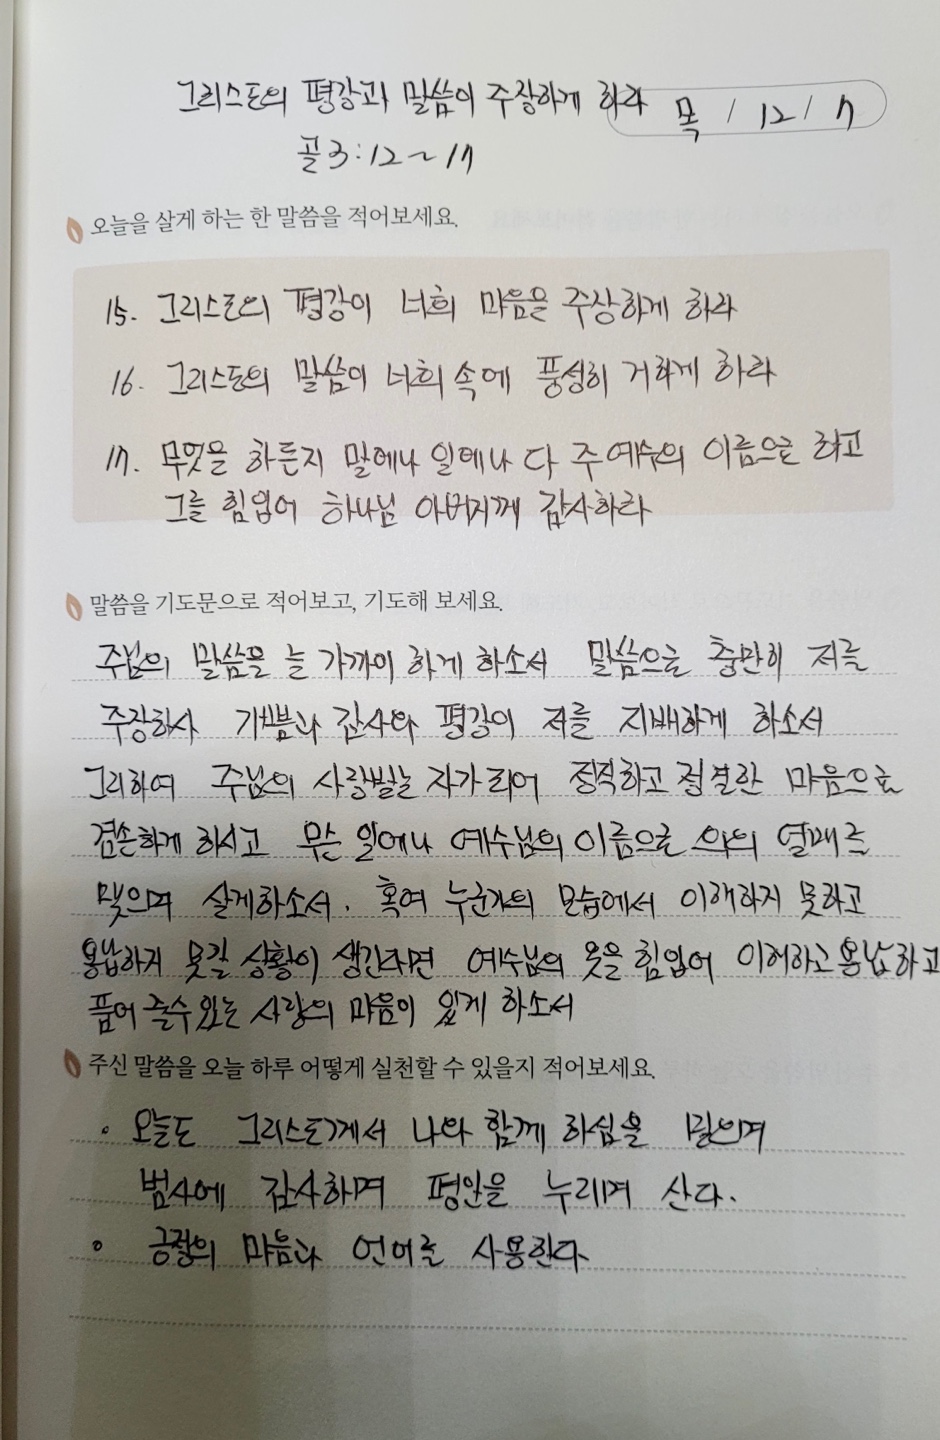 그리스도의 평강과 말씀이 주장하게 하라
목 / 12 / 7
골 3:12~17
오늘을 살게 하는 한 말씀을 적어보세요.
15. 그리스도의 평강이 너희 마음을 주장하게 하라
16. 그리스도의 말씀이 너희 속에 풍성히 거하게 하라
17. 무엇을 하든지 말에나 일에나 다 주 예수의 이름으로 하고
그를 힘입어 하나님 아버지께 감사하라
말씀을 기도문으로 적어보고, 기도해 보세요.
주님의 말씀을 늘 가까이 하게 하소서 말씀으로 충만히 저를
주장하사 기쁨과 감사와 평강이 저를 지배하게 하소서
그리하여 주님의 사랑받는 자가 되어 정직하고 정결한 마음으로
겸손하게 하시고 무슨 일에나 예수님의 이름으로 의의 열매를
맺으며 살게하소서. 혹여 누군가의 모습에서 이해하지 못하고
용납하지 못할 상황이 생긴다면 예수님의 옷을 힘입어 이해하고 용납하고
품어 줄수 있는 사랑의 마음이 있게 하소서
주신 말씀을 오늘 하루 어떻게 실천할 수 있을지 적어보세요.
• 오늘도 그리스도께서 나와 함께 하심을 믿으며
범사에 감사하며 평안을 누리며 산다.
• 긍정의 마음과 언어를 사용한다